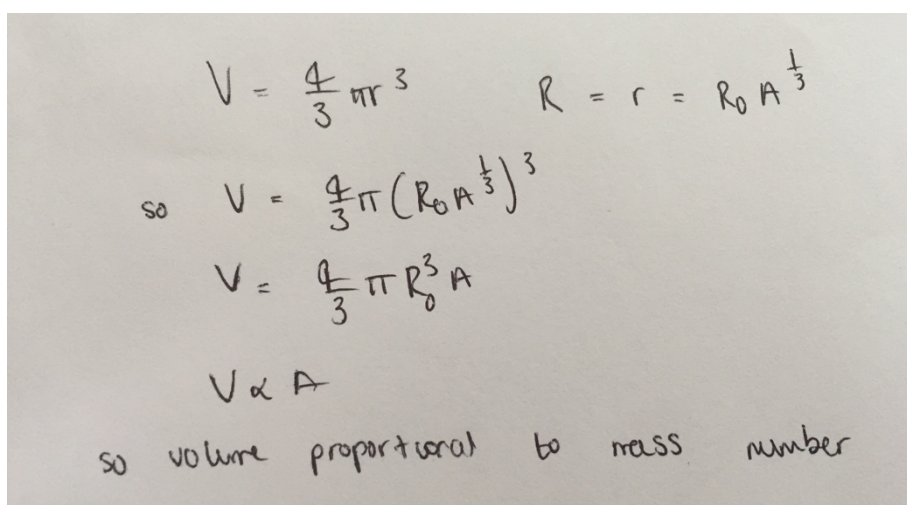 V = 4/3 πr³ R = r = R₀ A^⅓
so V = 4/3 π (R₀ A^⅓)³
V = 4/3 π R₀³ A
V ∝ A
so volume proportional to mass number